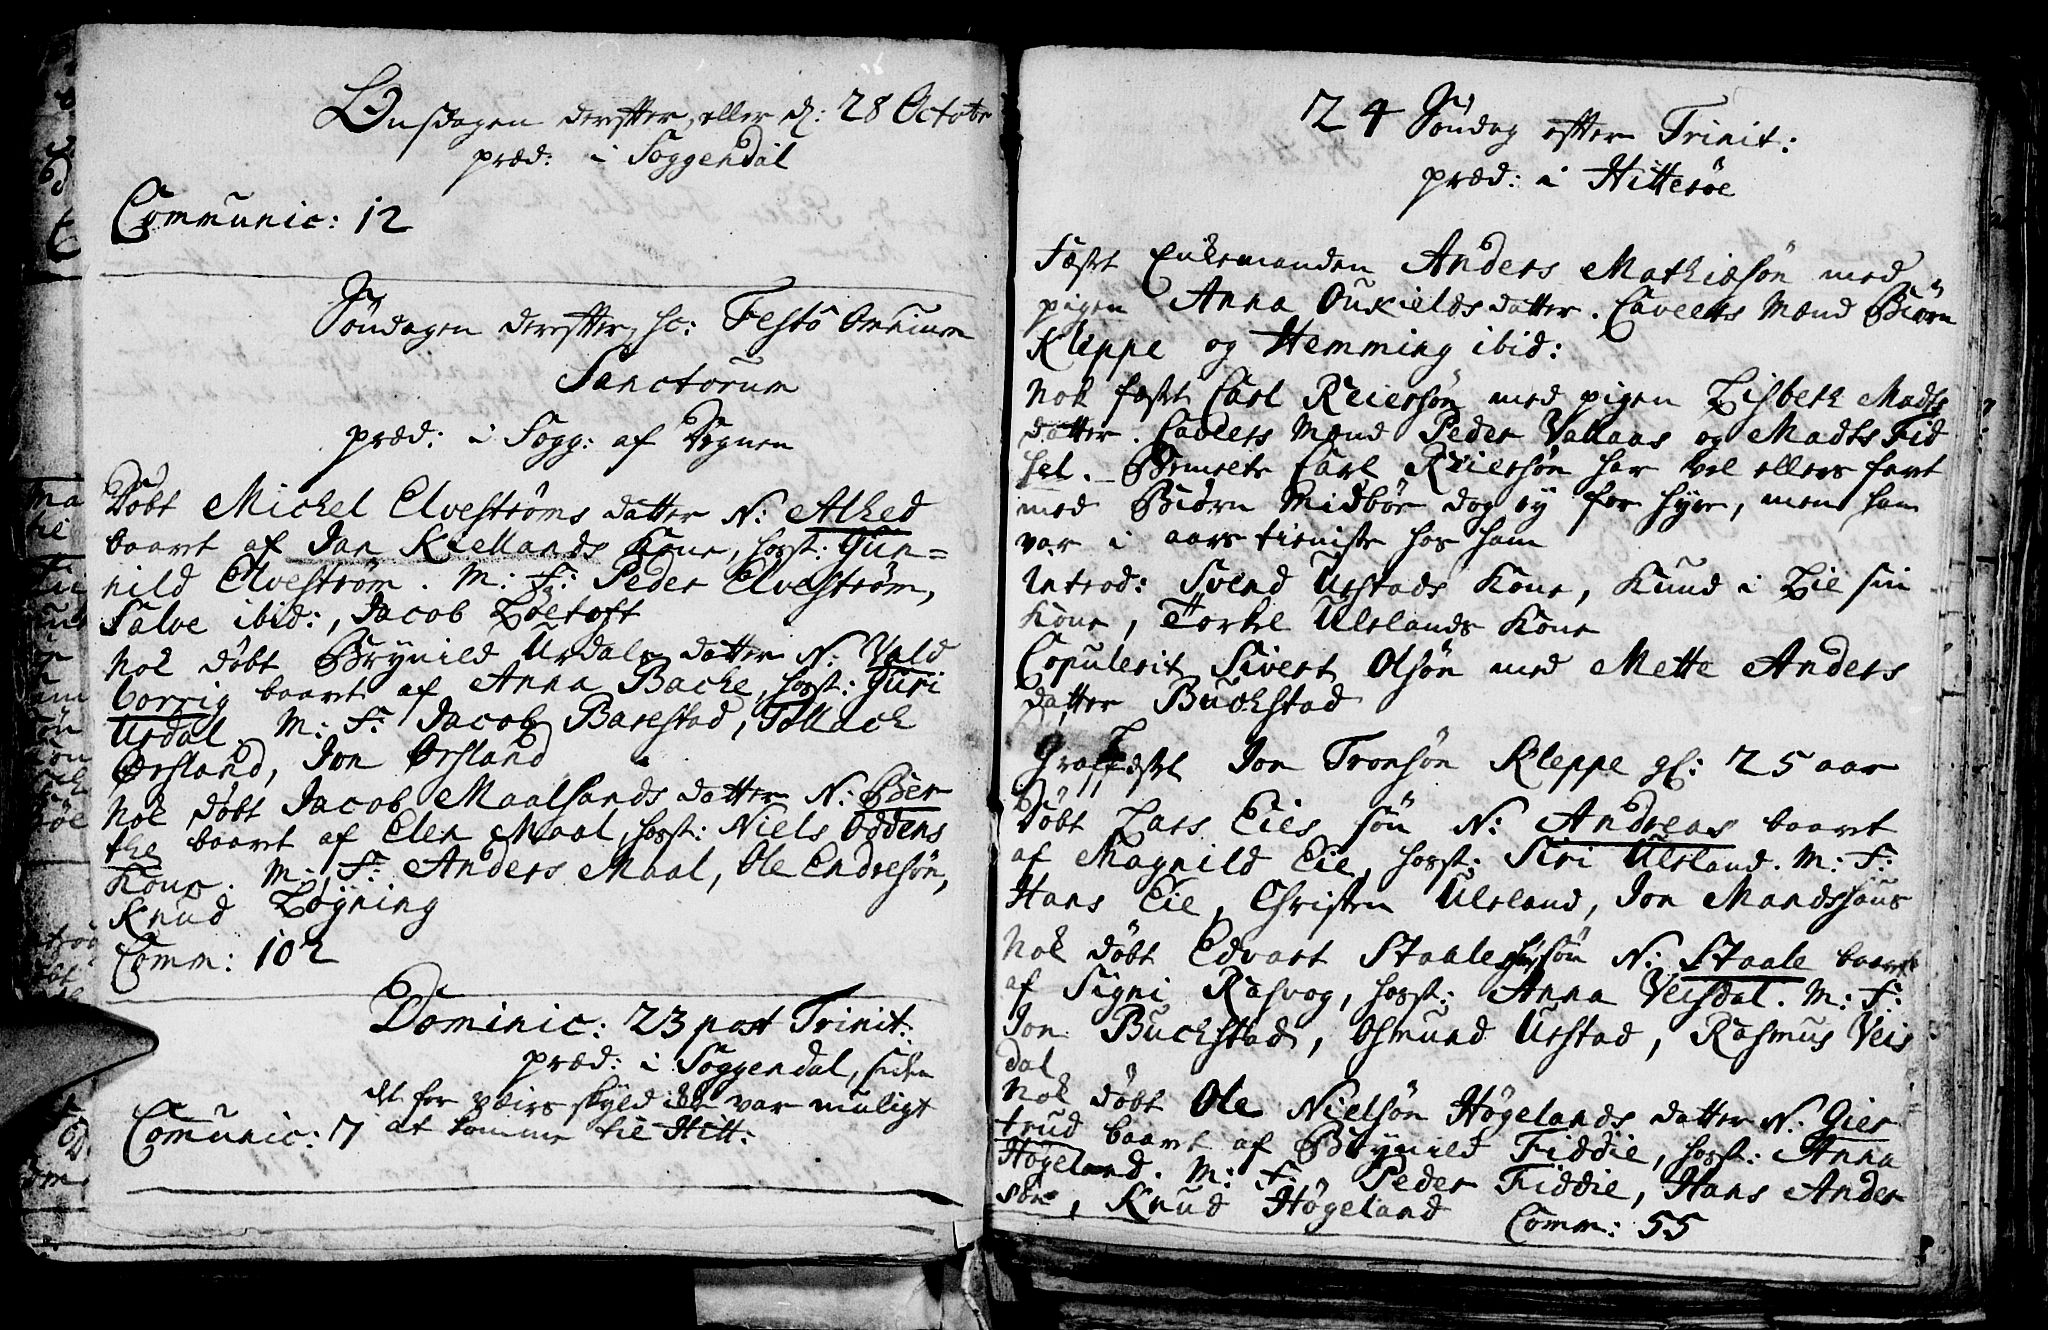 Onsdagen derefter, eller d: 28 Octobr
præd: i Soggendal
Communic: 12
Søndagen derefter, sc: Festô Omnium
Sanctorum
præd: i Sogg: af Vognen
Døbt Michel Elvestrøms datter N: Alhed
baaret af Jan Kiellands Kone, hosst: Gun=
nild Elvestrøm. M: F: Peder Elvestrøm,
Salve ibid:, Jacob Løetoft
Nok døbt Brynild Urdals datter N: Vald
borrig baaret af Anna Backe, hosst: Guri
Urdal. M: F: Jacob Barestad, Tollack
Ørsland, Jon Ørsland
Nok døbt Jacob Maalsands datter N: Ber
the baaret af Elen Maal, hosst: Niels Oddens
Kone. M: F: Anders Maal, Ole Endresøn,
Knud Løgning
Comm: 102
Dominic: 23 post Trinit:
præd: i Soggendal, siden
det for veirs skyld ikke var muligt
Comunic: 7 at komme til Hitt:
24 Søndag efter Trinit:
præd: i Hitterøe
Fæst Enkemanden Anders Mathiæsøn med
pigen Anna Oukieldsdatter. Caveets Mænd Biørn
Kleppe og Hemming ibid:
Nok fæst Carl Reiersøn med pigen Lisbeth Madts
datter. Caveets Mænd Peder Vallaas og Madts Fid
sel. Bemelte Carl Reiersøn har vel ellers faret
med Biørn Midbøe dog ey for hyre, men ham
var i aars tieniste hos ham
Introd: Svend Urstads Kone, Knud i Lie sin
Kone, Torkel Ulelands Kone
Copulerit Sivert Olsøn med Mette Anders
datter Buckstad
Graffæst Jon Tronsøn Kleppe gl: 25 aar
Døbt Lars Eies søn N: Andreas baaret
af Magnild Eie, hosst: Siri Uleland. M: F:
Hans Eie, Christen Uleland, Jon Mandshaus
Nok døbt Edvart Staalesens søn N: Staale baaret
af Signi Rasvog, hosst: Anna Veisdal. M: F:
Jon Buckstad, Osmund Urstad, Rasmus Veis
dal
Nok døbt Ole Nielsøn Høgelands datter N: Gier
trud baaret af Brynild Fiddie, hosst: Anna
Høgeland. M: F: Peder Fiddie, Hans Ander
søn, Knud Høgeland Comm: 55